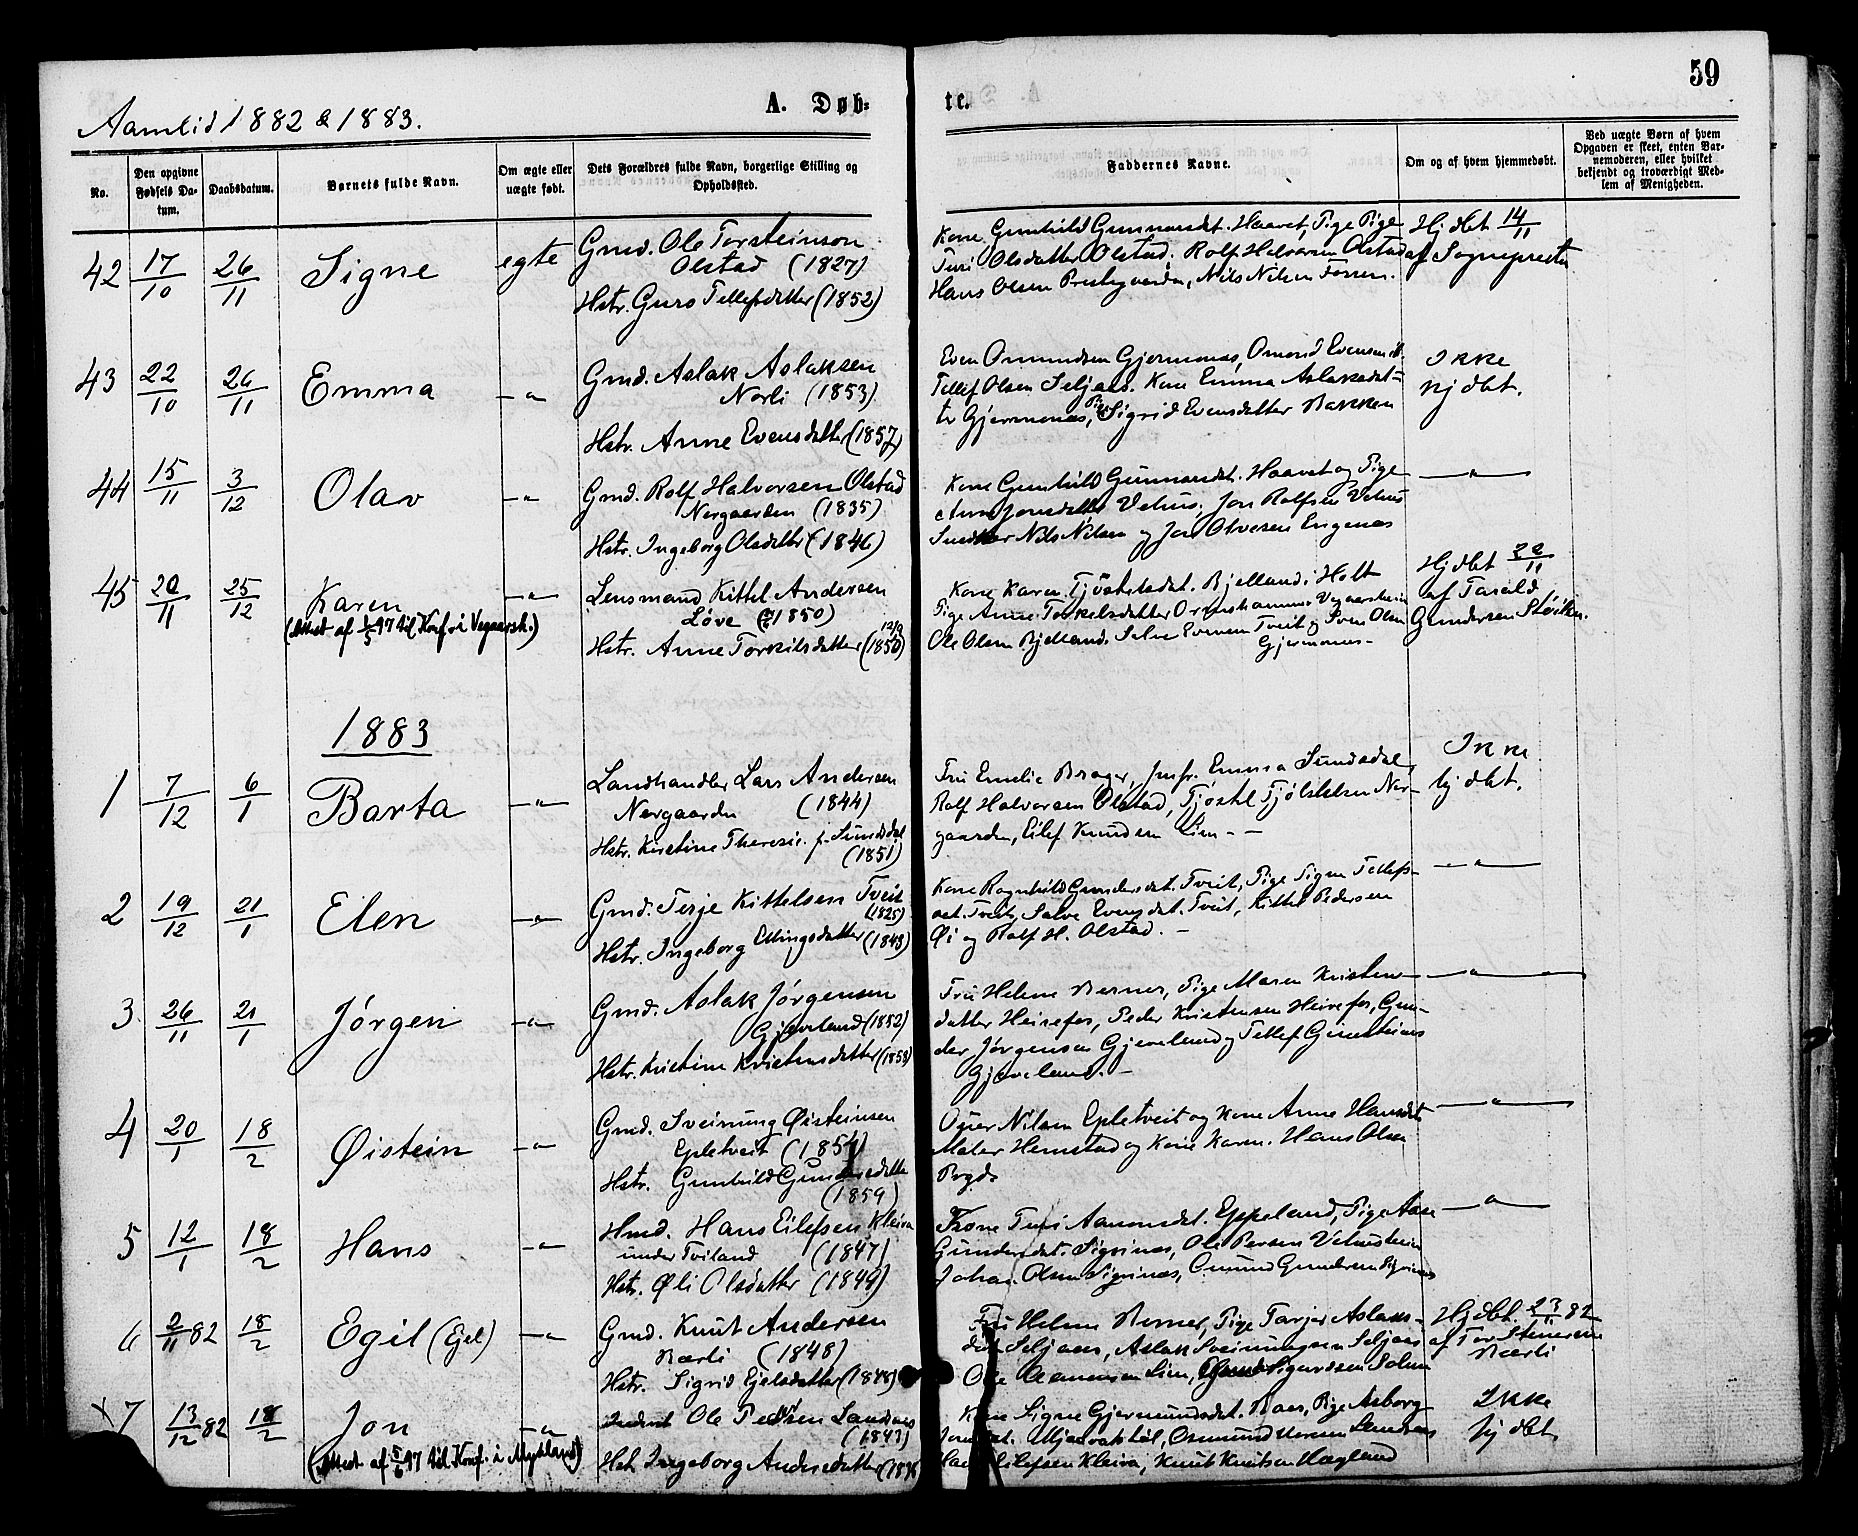 59
Aamlid 1882 & 1883.
A. Døb=
te.
No.
Den opgivne Fødsels Da-tum.
Daabsdatum.
Børnets fulde Navn.
Om ægte eller uægte født.
Dets Forældres fulde Navn, borgerlige Stilling og Opholdssted.
Faddernes Navne.
Om og af hvem hjemmedøbt.
Ved uægte Børn af hvem Opgaven er skeet, enten Bar-nemoderen, eller hvilket bekjendt og troværdigt Med-lem af Menigheden.
42 17/10 26/11 Signe egte
Gmd. Ole Torsteinson
Olstad (1827)
Hstr. Guro Tellefsdatter (1852)
Kone Gunhild Gunnarsdt. Haavet, Pige
Turi Olsdatter Olstad, Rolf Halvorsen Olstad
Hans Olsen Prestegaarden, Nils Nilsen Fossen.
Hjdbt 14/11
af Sognepresten
43 22/10 26/11 Emma -"-
Gmd. Aslak Aslaksen
Norli (1853)
Hstr. Anne Evensdatter (1857)
Even Omundsen Gjermones, Omund Evensen
Tellef Olsen Seljaas. Kone Emma Aslaksdat-
ter Gjermones, Pige Sigrid Evensdatter Bakken
Ikke
hjdbt.
44 15/11 3/12 Olav -"-
Gmd. Rolf Halvorsen Olstad
Nergaarden (1835)
Hstr. Ingeborg Olsdatter (1846)
Kone Gunhild Gunnarsdt. Haavet og Pige
Anne Jonsdatter Vehus, Jon Rolfsen Vehus
Nils Nilsen og Jon Olvesen Engenes
-"-
45 20/11 25/12 Karen -"-
(Attest af 1/5 97 til Konf. i Vegaarsh.)
Lensmand Kittel Andersen
Løve (1850)
Hstr. Anne Torkilsdatter (1850)
Kone Karen Tjøstelsdt. Bjelland i Holt
Pige Anne Torkelsdatter Vegaarsheien
Ole Olsen Bjelland. Salve Evensen Tveit og Sven Olsen
Gjermones-
Hjdbt 22/11
af Tarald
Gundersen Støilen.
1883
1 7/12 6/1 Barta -"-
Landhandler Lars Andersen
Nergaarden (1844)
Hstr. Kirstine Theresie f. Sundsdal
(1851)
Fru Emelie Brager, Jmfr. Emma Sundsdal,
Rolf Halvorsen Olstad, Tjøstel Tjøstelsen Ner-
gaarden, Eilef Knudsen Lien - -
Ikke
hjdbt.
2 19/12 21/1 Elen -"-
Gmd. Terje Kittelsen Tveit
(1825)
Hstr. Ingeborg Ellingsdatter (1843)
Kone Ragnhild Gundersdt. Tveit, Pige Signe Tellefs-
dt. Tveit, Salve Evensdt. Tveit, Kittel Pedersen
Øi og Rolf H. Olstad. -
-"-
3 26/11 21/1 Jørgen -"-
Gmd. Aslak Jørgensen
Gjeveland (1852)
Hstr. Kristine Kristensdatter (1858)
Fru Helene Berner, Pige Maren Kristens-
datter Heirefos, Peder Kristensen Heirefos, Gun-
der Jørgensen Gjeveland og Tellef Gunsteinsen
Gjeveland. -
-"-
4 20/1 18/2 Øistein -"-
Gmd. Sveinung Øisteinsen
Epletveit (1854)
Hstr. Gunhild Gundersdatter
(1859)
Nilsen Epletveit og Kone Anne Hansdt
Hemstad og Kone Karen. Hans Olsen
-"-
5 12/1 18/2 Hans -"-
Hmd. Hans Eilefsen Kleiva
under Tviland (1847)
Hstr. Øli Olsdatter (1849)
Kone Turi Aamonsdt. Eppeland, Pige Aase
Gundersdt. Sigrinæs, Ole Persen Vehusheia
Johan Olsen Sigrinæs, Omund Gundersen Sigrinæs
-"-
6 2/11 82 18/2 Egil (Ejel) -"-
Gmd. Knut Andersen
Nærli (1848)
Hstr. Sigrid Ejelsdatter (1848)
Fru Helene Berner, Pige Tarjer Aslaks-
datter Seljaas, Aslak Sveinungsen Seljaas
Ole Lien, Sigurdsen
Hjdbt. 23/11 82
af Tor Stenersen
Nærli
x7 13/12 82 18/2 Jon -"-
(Attest af 5/6 97 til Konf. i Mykland)
Ole Pedersen Landaas
(1843)
Hstr. Ingeborg Andersdatter
Kone Signe Gjermundsdt. Baas, Pige Asborg
Jonsdt. Mjaavatshøl, Osmund
Eilefsen Kleiva, Knut Knutsen Hægland
Ikke
hjdbt